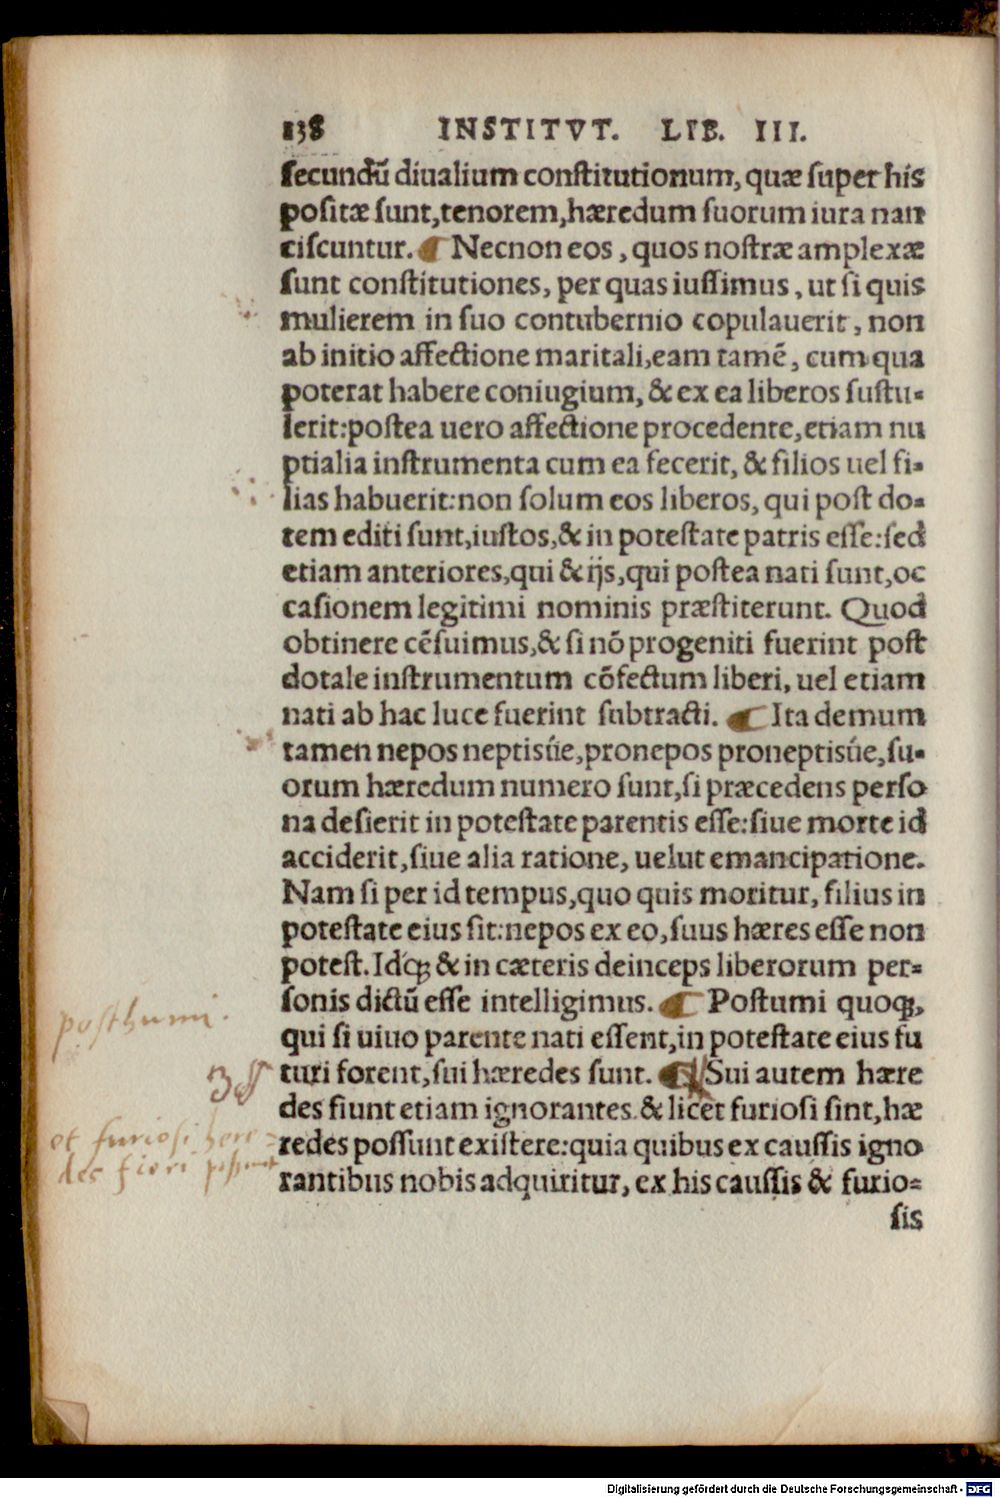 138 INSTITVT. LIB. III.
secundũ diualium constitutionum, quæ super his
positæ sunt,tenorem,hæredum suorum iura nan
ciscuntur. Necnon eos, quos nostræ amplexæ
sunt constitutiones, per quas iussimus, ut si quis
mulierem in suo contubernio copulauerit, non
ab initio affectione maritali,eam tamẽ, cum qua
poterat habere coniugium, & ex ea liberos sustu-
lerit:postea uero affectione procedente,etiam nu
ptialia instrumenta cum ea fecerit, & filios uel fi-
lias habuerit:non solum eos liberos, qui post do-
tem editi sunt,iustos,& in potestate patris esse:sed
etiam anteriores,qui & ijs,qui postea nati sunt,oc
casionem legitimi nominis præstiterunt. Quod
obtinere cẽsuimus,& si nõ progeniti fuerint post
dotale instrumentum cõfectum liberi, uel etiam
nati ab hac luce fuerint subtracti. Ita demum
tamen nepos neptisúe,pronepos proneptisúe,su-
orum hæredum numero sunt,si præcedens perso
na desierit in potestate parentis esse:siue morte id
acciderit,siue alia ratione, uelut emancipatione.
Nam si per id tempus,quo quis moritur, filius in
potestate eius sit:nepos ex eo,suus hæres esse non
potest. Idqꝫ & in cæteris deinceps liberorum per-
sonis dictũ esse intelligimus. Postumi quoqꝫ,
posthumi.
qui si uiuo parente nati essent,in potestate eius fu
turi forent,sui hæredes sunt. Sui autem hære
des fiunt etiam ignorantes. & licet furiosi sint,hæ
et furiosi here-
des fieri possunt
redes possunt existere:quia quibus ex caussis igno
rantibus nobis adquiritur, ex his caussis & furio-
sis
Digitalisierung gefördert durch die Deutsche Forschungsgemeinschaft - DFG